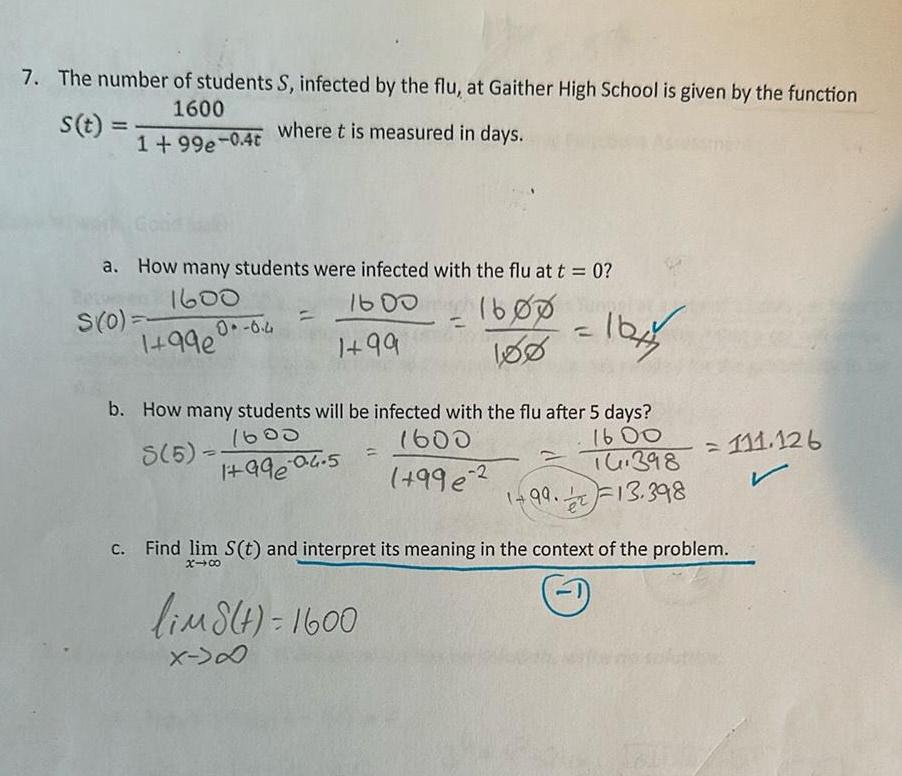 7. The number of students S, infected by the flu, at Gaither High School is given by the function
S(t) = 1600 / 1 + 99e^-0.4t where t is measured in days.
a. How many students were infected with the flu at t = 0?
S(0) = 1600 / 1+99e^0·-0.4 = 1600 / 1+99 = 1600 / 100 = 16 ✓
b. How many students will be infected with the flu after 5 days?
S(5) = 1600 / 1+99e^-0.4·5 = 1600 / 1+99e^-2 = 1600 / 14.398 = 111.126 ✓
1+99· 1/e^2 = 13.398
c. Find lim x→∞ S(t) and interpret its meaning in the context of the problem.
-1
lim S(t) = 1600
x->∞